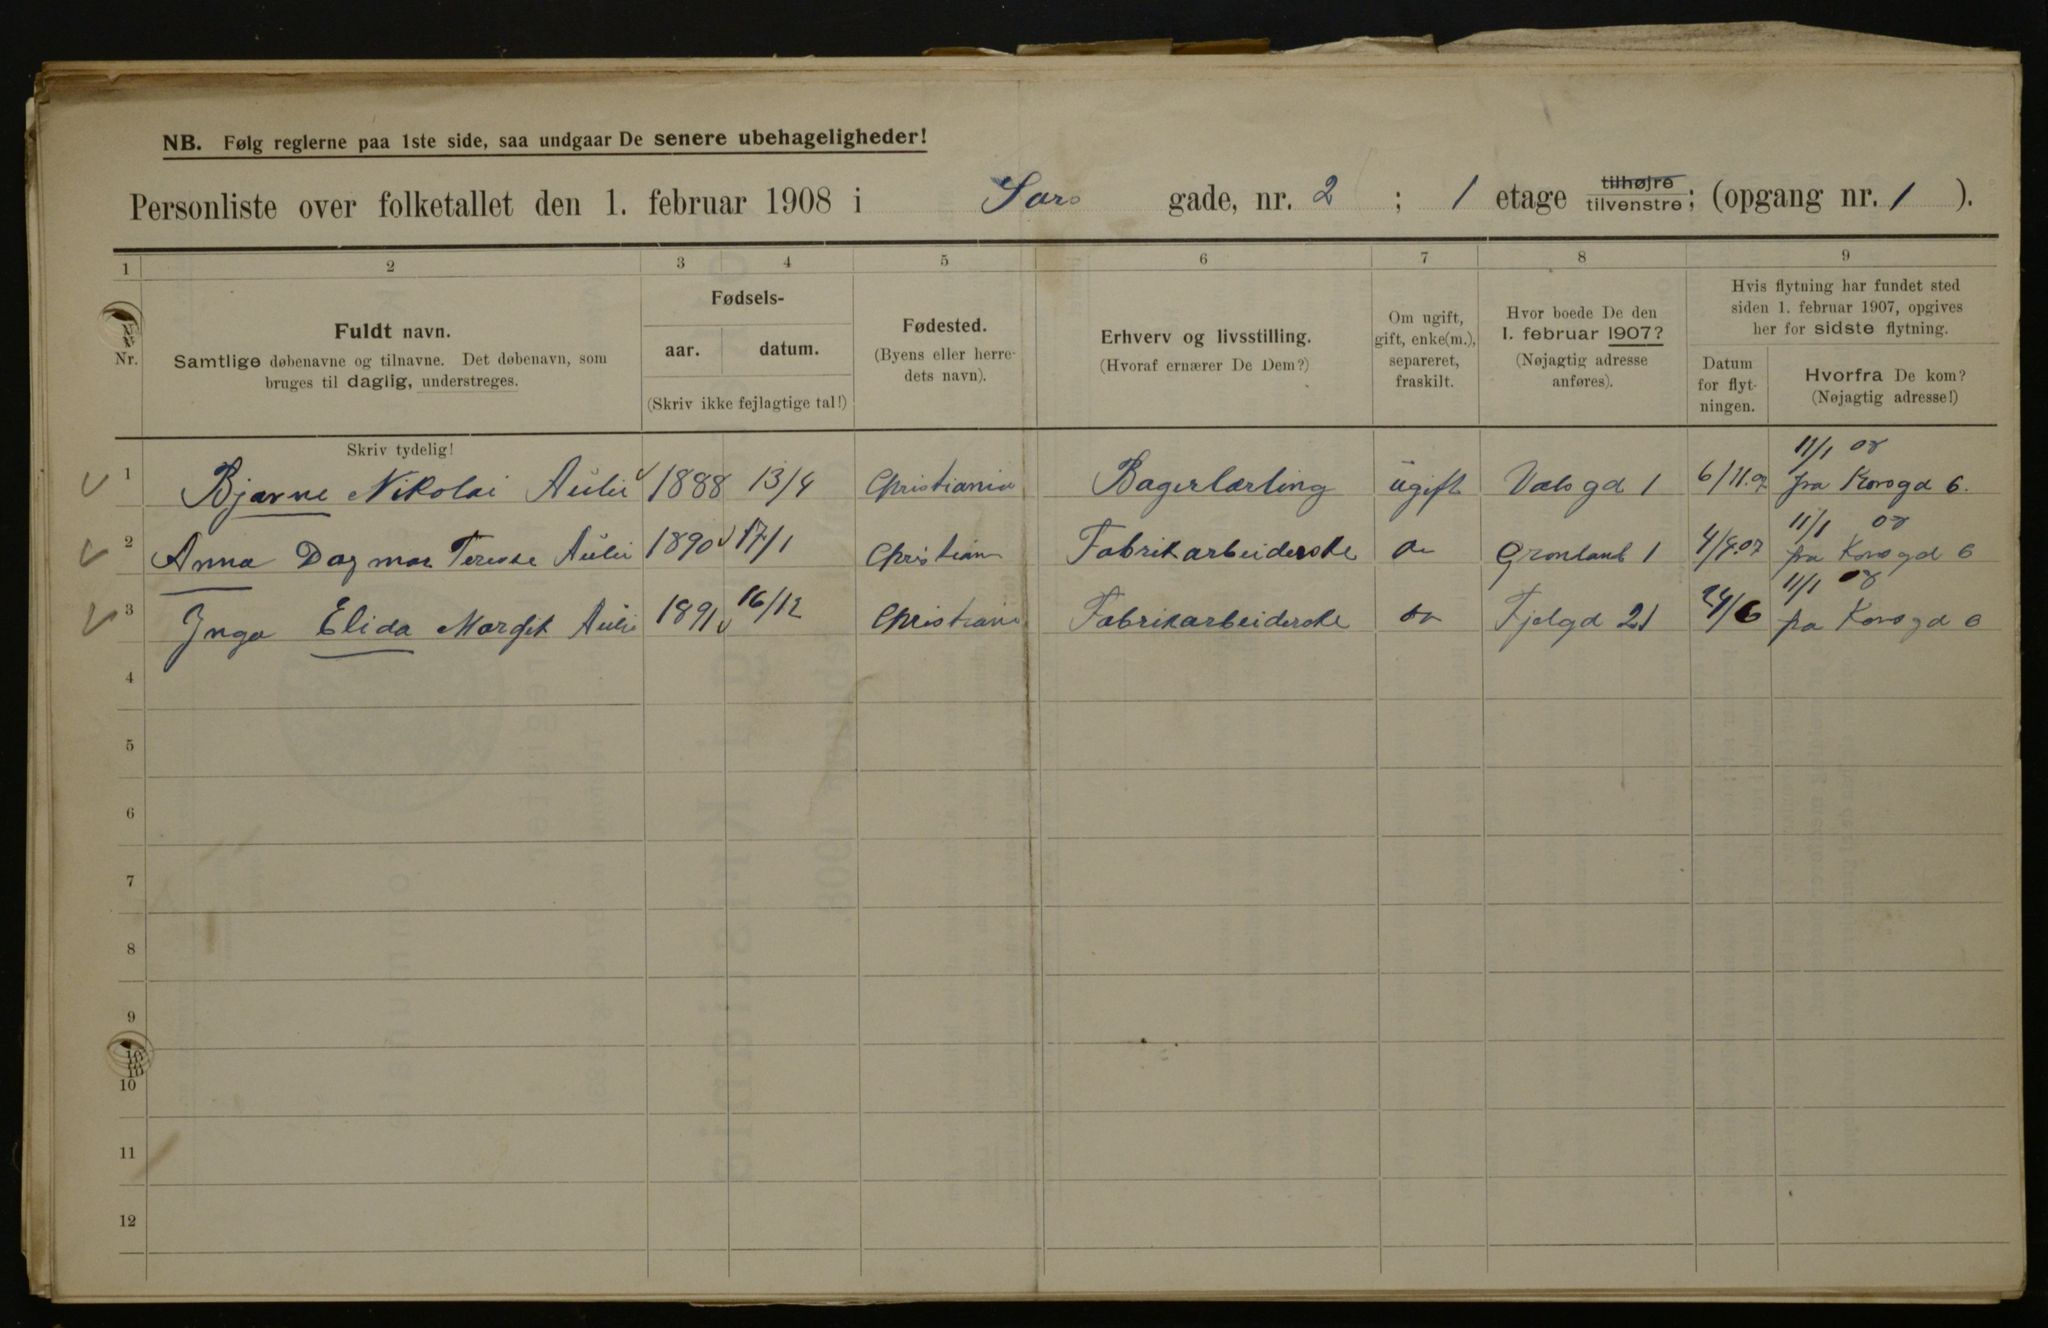 NB. Følg reglerne paa 1ste side, saa undgaar De senere ubehageligheder!
Personliste over folketallet den 1. februar 1908 i Sars gade, nr. 2 ; 1 etage tilhøjre tilvenstre; (opgang nr. 1 ).
1 2 3 4 5 6 7 8 9
Nr.
Fuldt navn.
Samtlige døbenavne og tilnavne. Det døbenavn, som
bruges til daglig, understreges.
Skriv tydelig!
Fødsels-
aar. datum.
(Skriv ikke fejlagtige tal!)
Fødested.
(Byens eller herre-
dets navn).
Erhverv og livsstilling.
(Hvoraf ernærer De Dem?)
Om ugift,
gift, enke(m.),
separeret,
fraskilt.
Hvor boede De den
1. februar 1907?
(Nøjagtig adresse
anføres).
Hvis flytning har fundet sted
siden 1. februar 1907, opgives
her for sidste flytning.
Datum
for flyt-
ningen.
Hvorfra De kom?
(Nøjagtig adresse!)
11/1 08
1 Bjarne Nikolai Aulie 1888 13/4 Christiania Bagerlærling ugift Vals gd 1 6/11.07 fra Korsgd 6.
11/1 08
2 Anna Dagmar Terese Aulie 1890 17/1 Christian Fabrikarbeiderske Grønland 1 4/9.07 fra Korsgd 6
11/1 08
3 Inga Elida Margit Aulie 1891 16/12 Christiania Fabrikarbeiderske Fjelgd 21 24/6 fra Korsgd 6
4
5
6
7
8
9
10
11
12